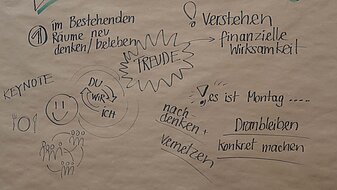 1 im Bestehenden
Räume neu
denken/beleben
! Verstehen
finanzielle
Wirksamkeit
FREUDE
KEYNOTE
DU
WIR
ICH
! es ist Montag .....
nach
denken +
vernetzen
Dranbleiben
konkret machen